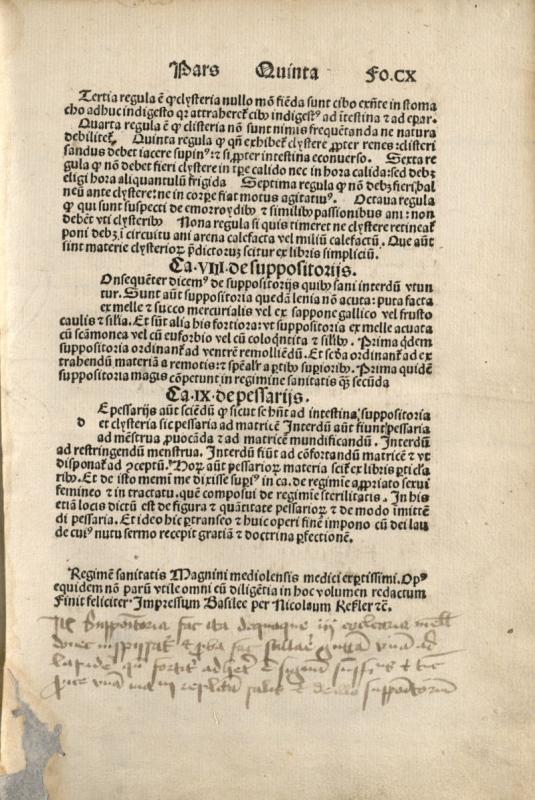 Pars Quinta Fo.CX
Tertia regula ē ꝙ clysteria nullo mō fiēda sunt cibo exn̄te in stoma
cho adhuc indigesto qꝛ attraheret̄ cibꝰ indigestꝰ ad ītestina ⁊ ad epar.
Quarta regula ē ꝙ clisteria nō sunt nimis frequētanda ne natura
debilitet̄. Quinta regula ꝙ qn̄ exhibet̄ clystere ꝓpter renes: clisteri
sandus debet iacere supinꝰ: ⁊ si ꝓpter intestina econuerso. Sexta re
gula ꝙ nō debet fieri clystere in tꝑe calido nec in hora calida: sed debꝫ
eligi hora aliquantulū frigida Septima regula ꝙ nō debꝫ fieri bal
neū ante clystere: ne in corꝑe fiat motus agitatiuꝰ. Octaua regula
ꝙ qui sunt suspecti de emorroydibꝰ ⁊ similibꝰ passionibus ani: non
debēt vti clysteribꝰ Nona regula si quis timeret ne clystere retineat̄
poni debꝫ ī circuitu ani arena calefacta vel miliū calefactū. Que aūt
sint materie clysterioꝝ p̄dictoruꝫ scitur ex libris simpliciū.
Ca.VIII.de suppositorijs.
Onsequēter dicemꝰ de suppositorijs quibꝰ sani interdū vtun
tur. Sunt aūt suppositoria quedā lenia nō acuta: puta facta
ex melle ⁊ succo mercurialis vel ex sappone gallico vel frusto
caulis ⁊ sīlia. Et sūt alia his fortiora: vt suppositoria ex melle acuata
cū scāmonea vel cū euforbio vel cū coloq̄ntita ⁊ sīlibꝰ. Prima q̄dem
suppositoria ordinant̄ ad ventrē remolliēdū. Et scḋa ordinant̄ ad ex
trahendū materiā a remotis: ⁊ spēalr̄ a ꝑtibꝰ superioribꝰ. Prima quidē
suppositoria magis cōpetunt in regimine sanitatis qꝫ secūda
Ca.IX.de pessarijs.
d E pessarijs aūt sciēdū ꝙ sicut se hn̄t ad intestina suppositoria
et clysteria sic pessaria ad matricē Interdū aūt fiunt pessaria
ad mēstrua ꝓuocāda ⁊ ad matricē mundificandū. Interdū
ad restringendū menstrua. Interdū fiūt ad cōfortandū matricē ⁊ vt
disponat̄ ad ꝯceptū. Hoꝝ aūt pessarioꝝ materia scit̄ ex libris ꝑticula
ribꝰ. Et de isto memi me dixisse suprꝰ in ca. de regimīe aꝓpriato sexui
femineo ⁊ in tractatu. quē composui de regimīe sterilitatis. In his
etiā locis dictū est de figura ⁊ quātitate pessarioꝝ ⁊ de modo imittē
di pessaria. Et ideo hic ꝑtranseo ⁊ huic operi finē impono cū dei lau
de cuiꝰ nutu sermo recepit gratiā ⁊ doctrina ꝑfectionē.
Regimē sanitatis Magnini mediolensis medici exꝑtissimi. Opꝰ
equidem nō parū vtile omni cū diligētia in hoc volumen redactum
Finit feliciter Impressum Basilee per Nicolaum Kesler ⁊c̄.
Suppositoria fac ita
donec fac guttam vnam ad
lapidem
suppositorium